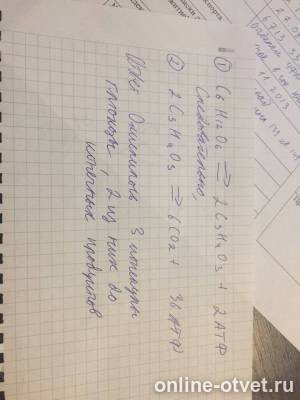 ① C6H12O6 ⇌ 2C3H4O3 + 2АТФ
Следовательно,
② 2C3H4O3 ⇌ 6CO2 + 36 АТФ
Ответ: Окислилось 3 молекулы
глюкозы, 2 из них до
конечных продуктов
11.2013
online-otvet.ru